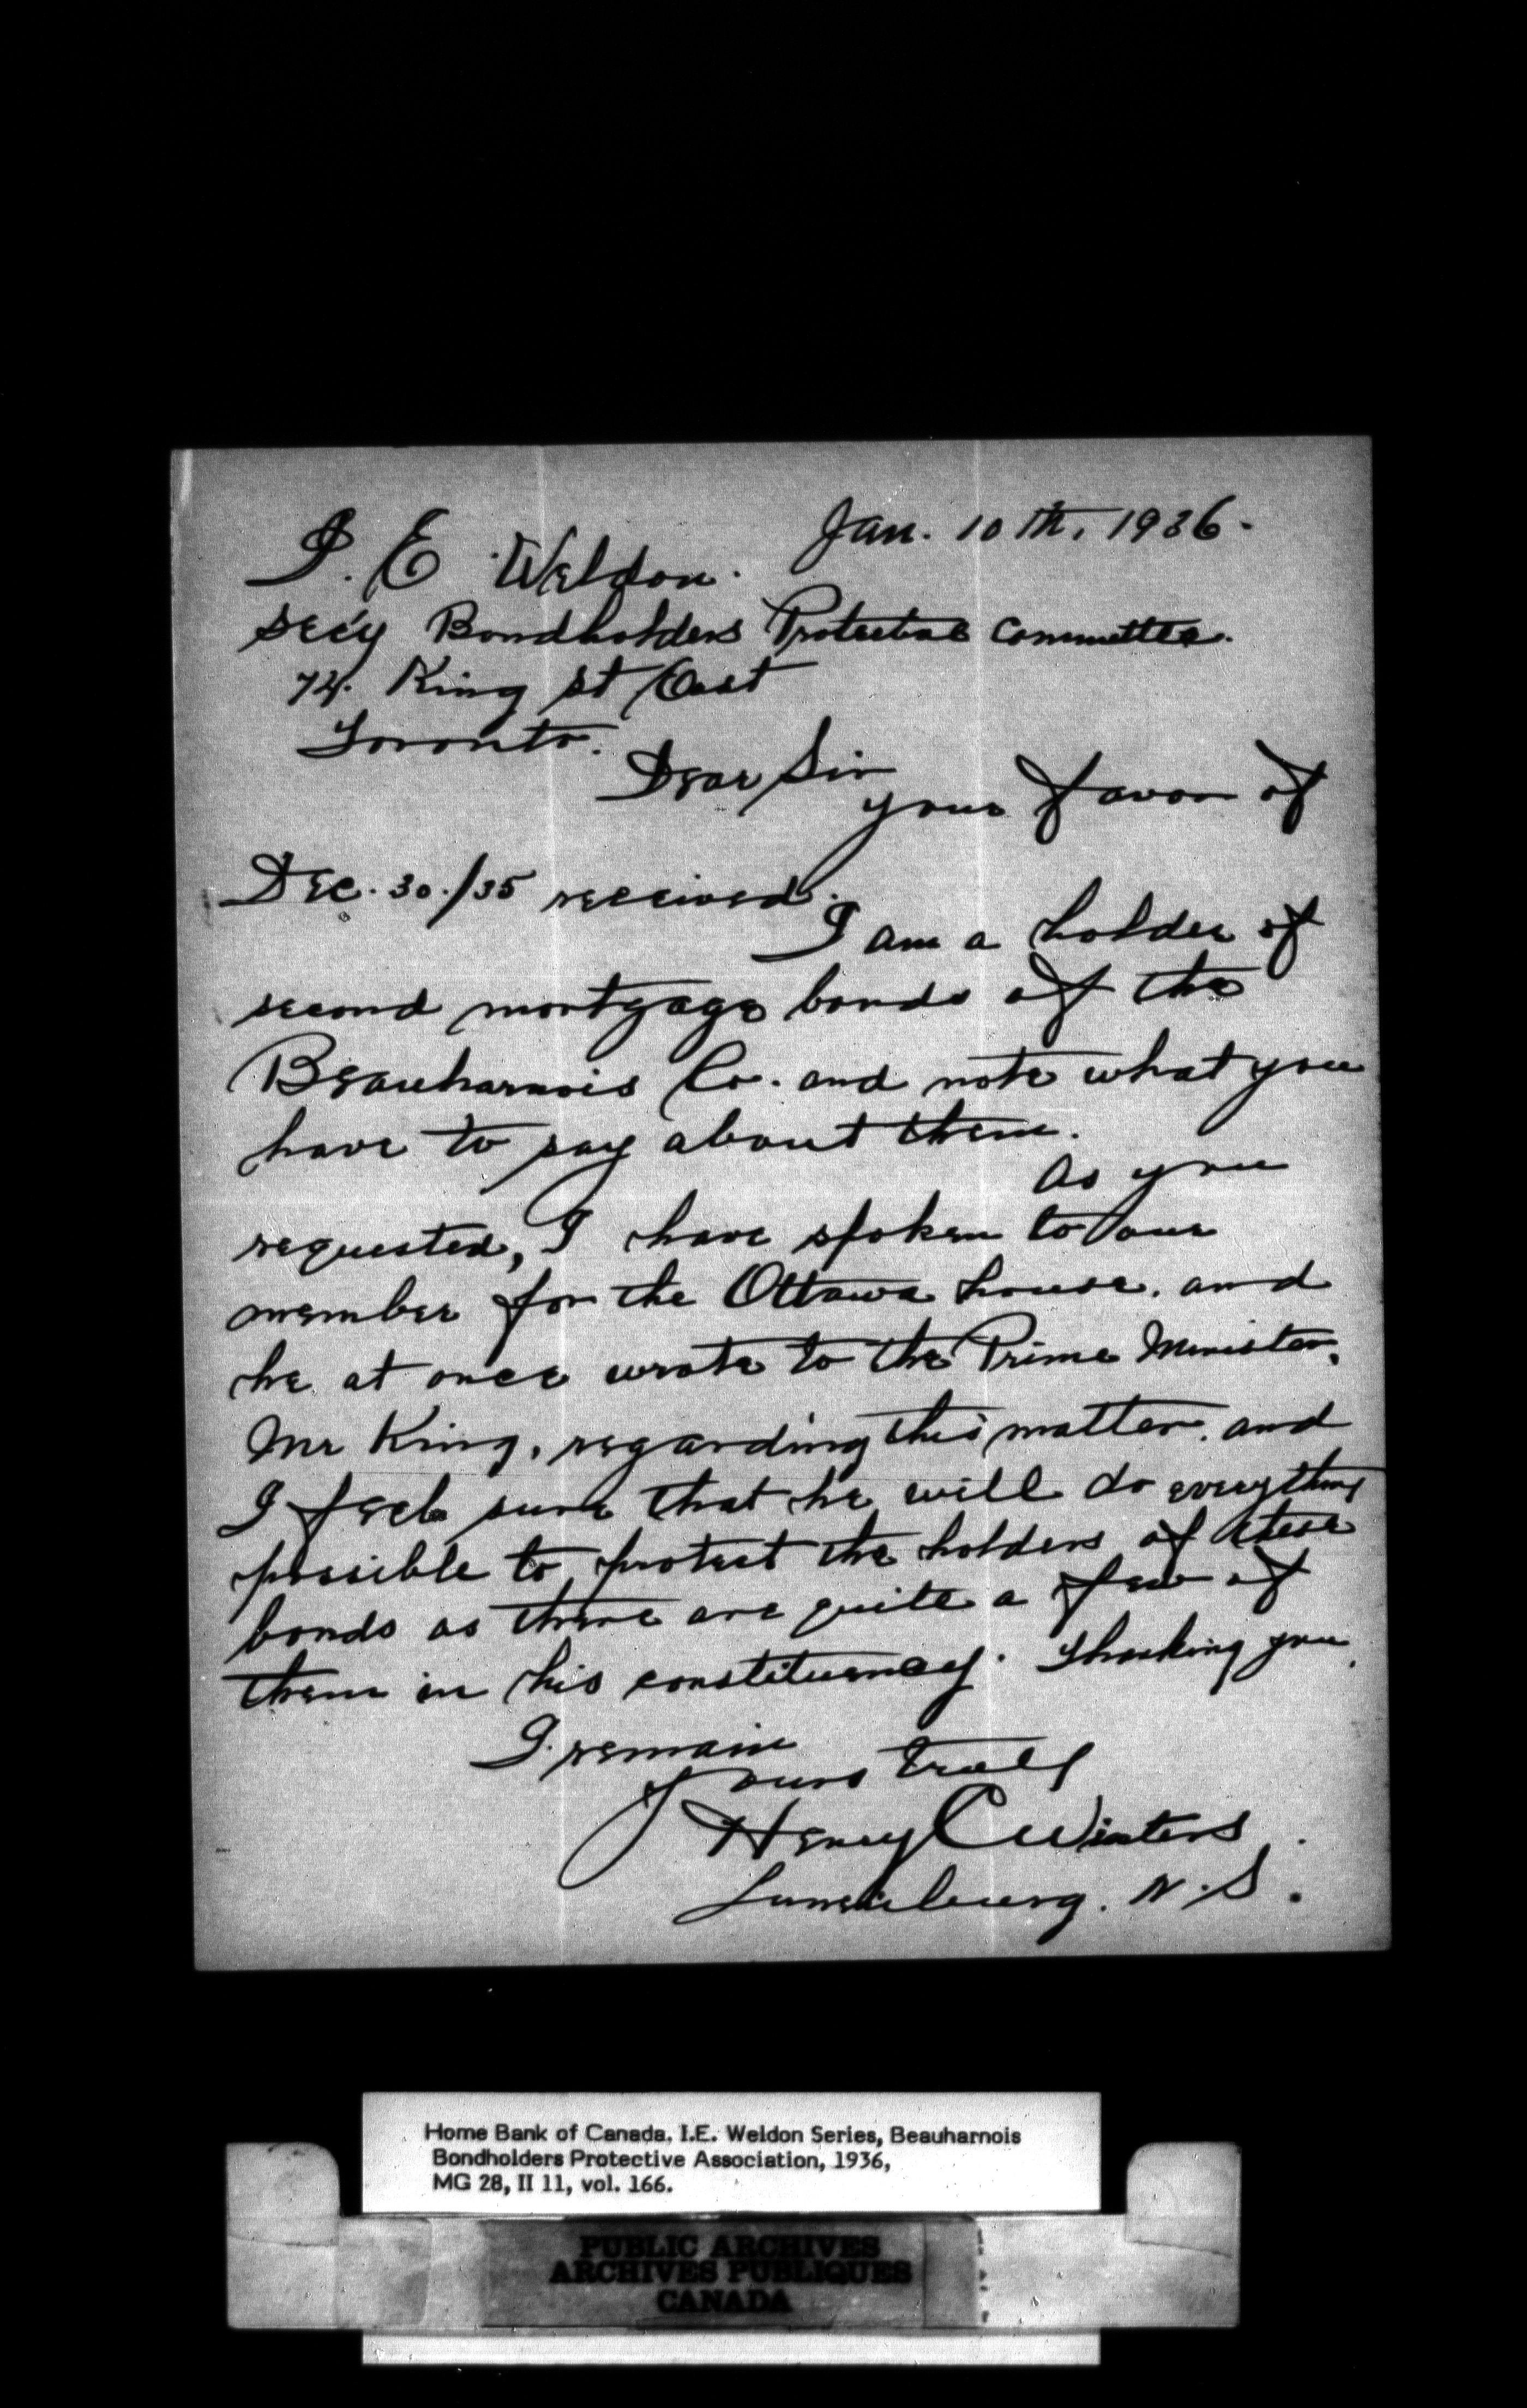 Jan. 10th, 1936.
I. E. Weldon.
Sec'y Bondholders Protective Committee.
74. King St East
Toronto.
Dear Sir
your favor of
Dec. 30./35 received.
I am a holder of
second mortgage bonds of the
Beauharnois Co. and note what you
have to say about them.
As you
requested, I have spoken to our
member for the Ottawa house. and
he at once wrote to the Prime Minister,
Mr King, regarding this matter. and
I feel sure that he will do everything
possible to protect the holders of these
bonds as there are quite a few of
them in his constituency. Thanking you,
I remain
Yours truly
Henry C Winters
Lunenburg. N.S.
Home Bank of Canada. I.E. Weldon Series, Beauharnois
Bondholders Protective Association, 1936,
MG 28, II 11, vol. 166.
PUBLIC ARCHIVES
ARCHIVES PUBLIQUES
CANADA